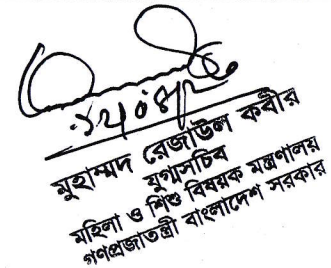 মুহাম্মদ রেজাউল কবীর
যুগ্মসচিব
মহিলা ও শিশু বিষয়ক মন্ত্রণালয়
গণপ্রজাতন্ত্রী বাংলাদেশ সরকার